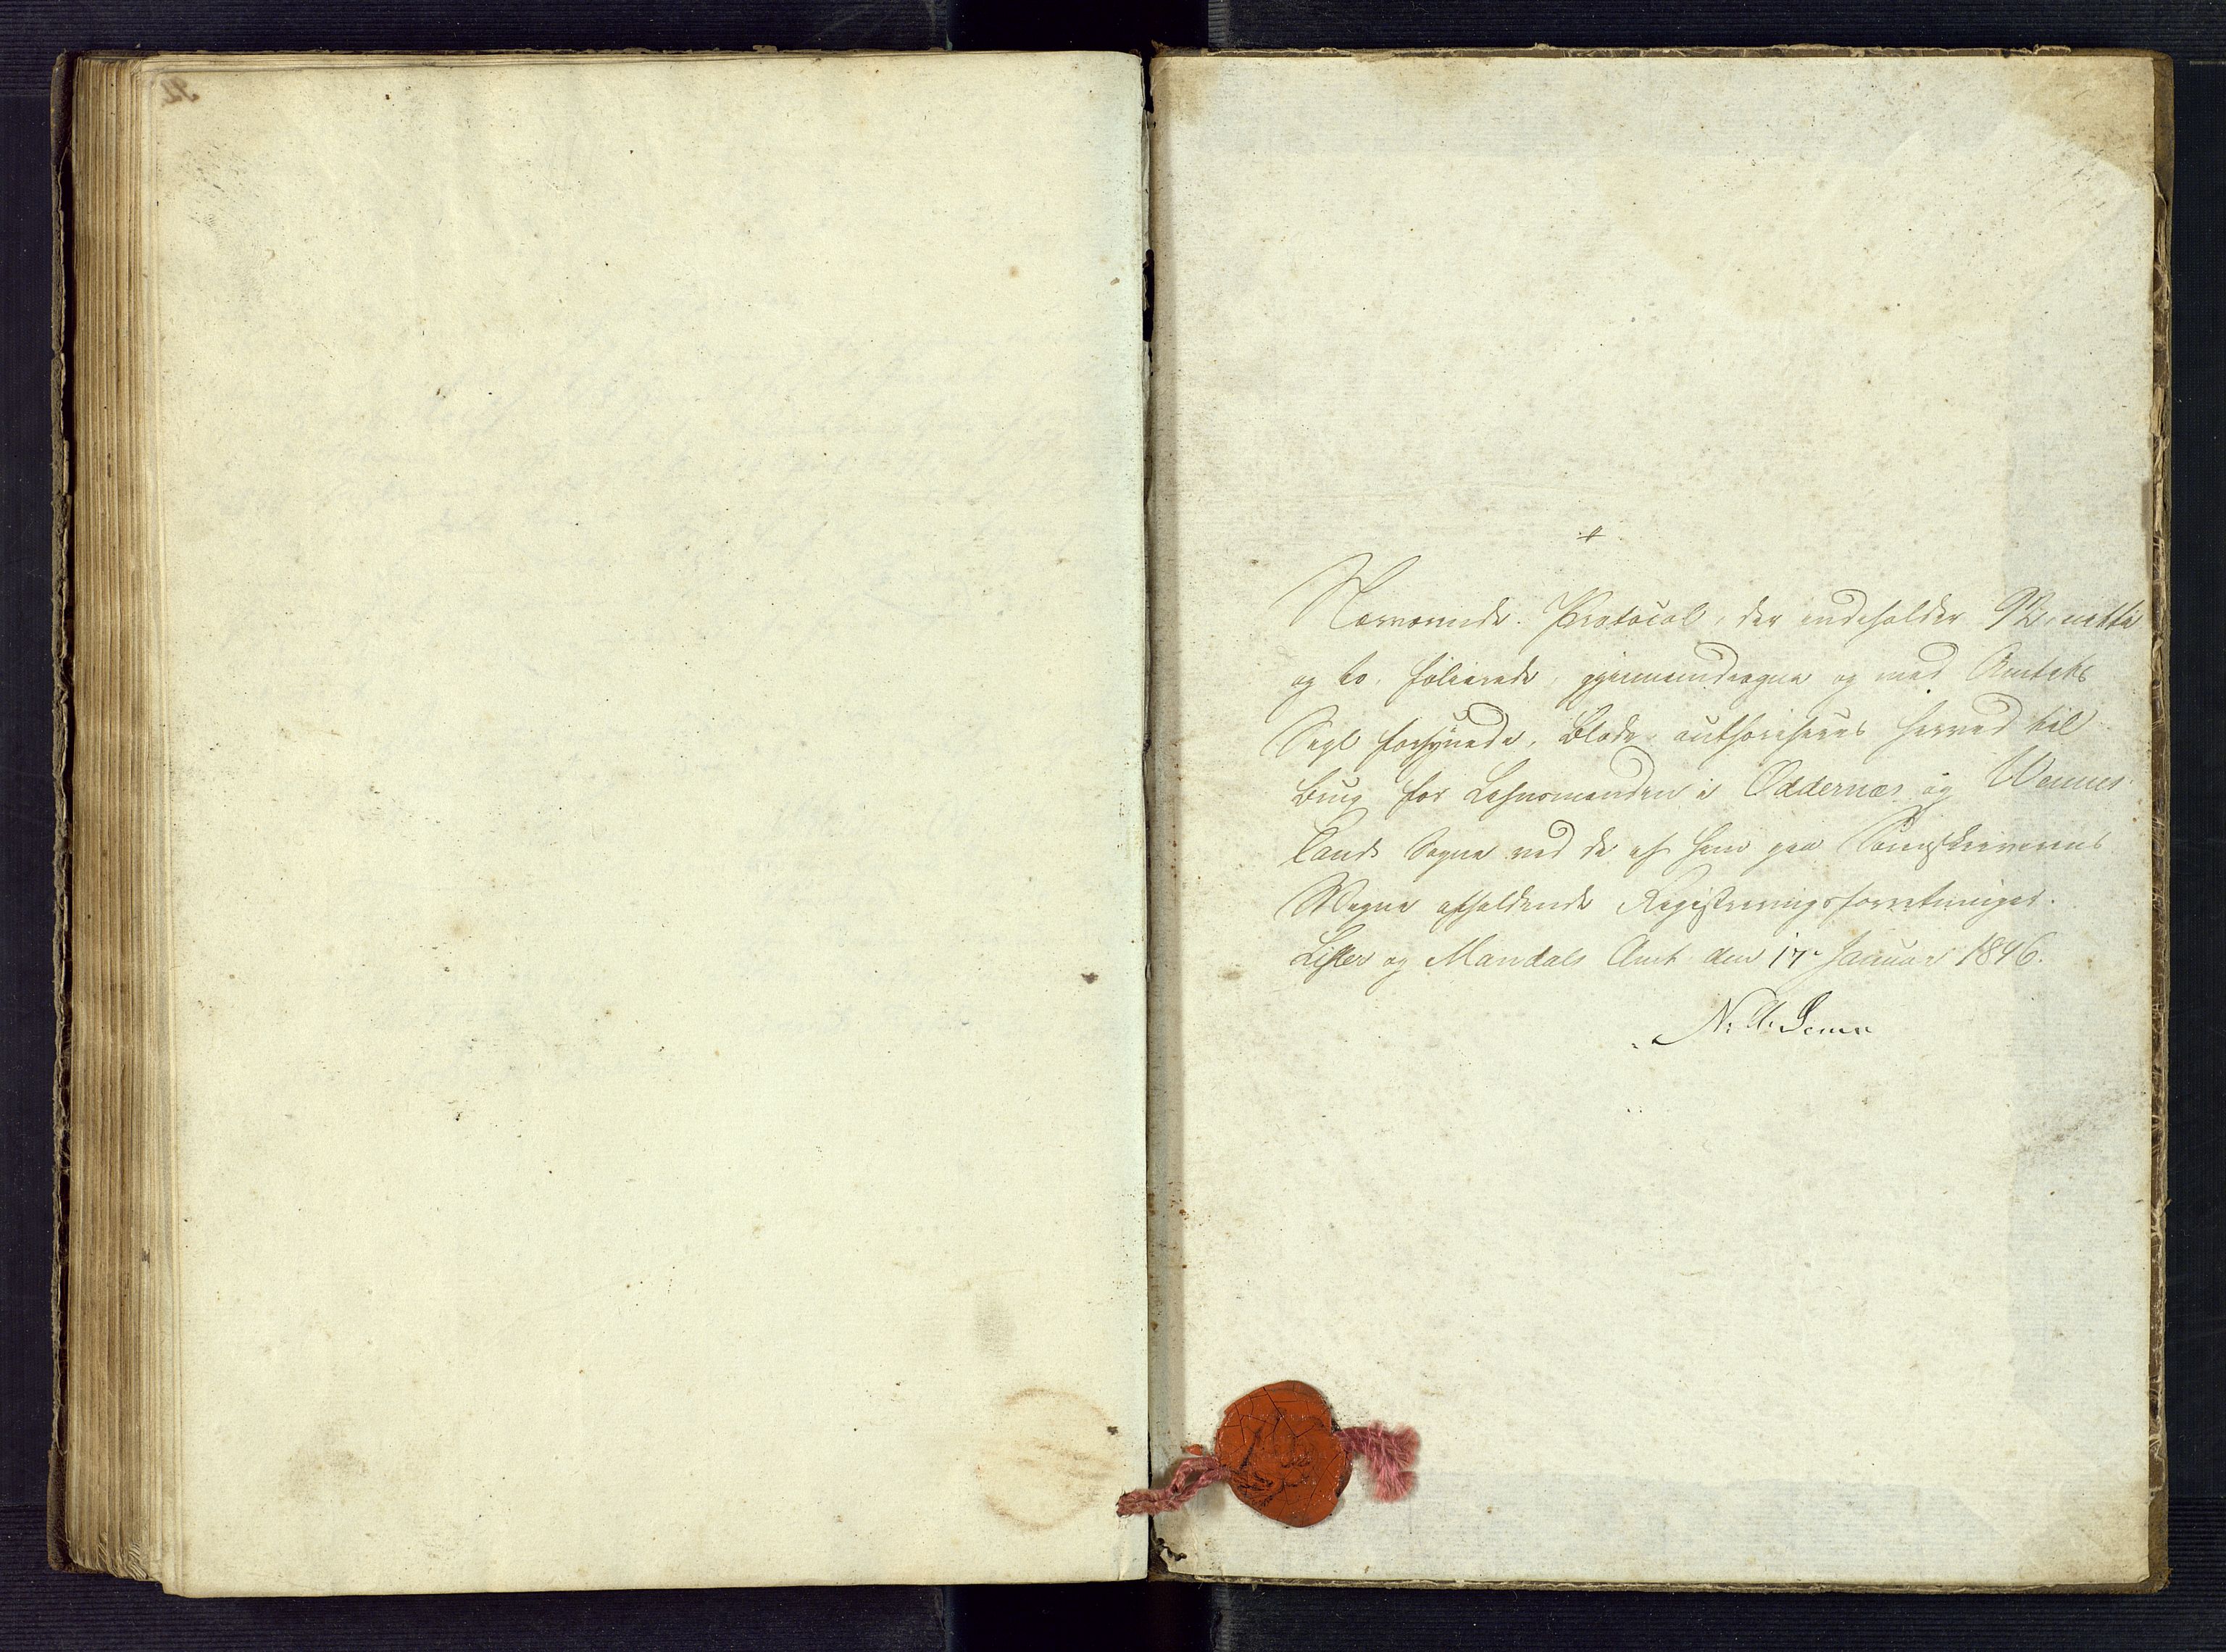 Nærværende Protocol, der indeholder 92, nitti
og to, folierede, gjennemdragne og med Amtets
Segl forsynede, Blade, authoriseres herved til
Brug for Lehnsmanden i Oddernæs og Vennes-
lands Sogne ved de af ham paa Sorenskriverens
Vegne afholdende Registreringsforretninger.
Lister og Mandals Amt den 17 Januar 1846.